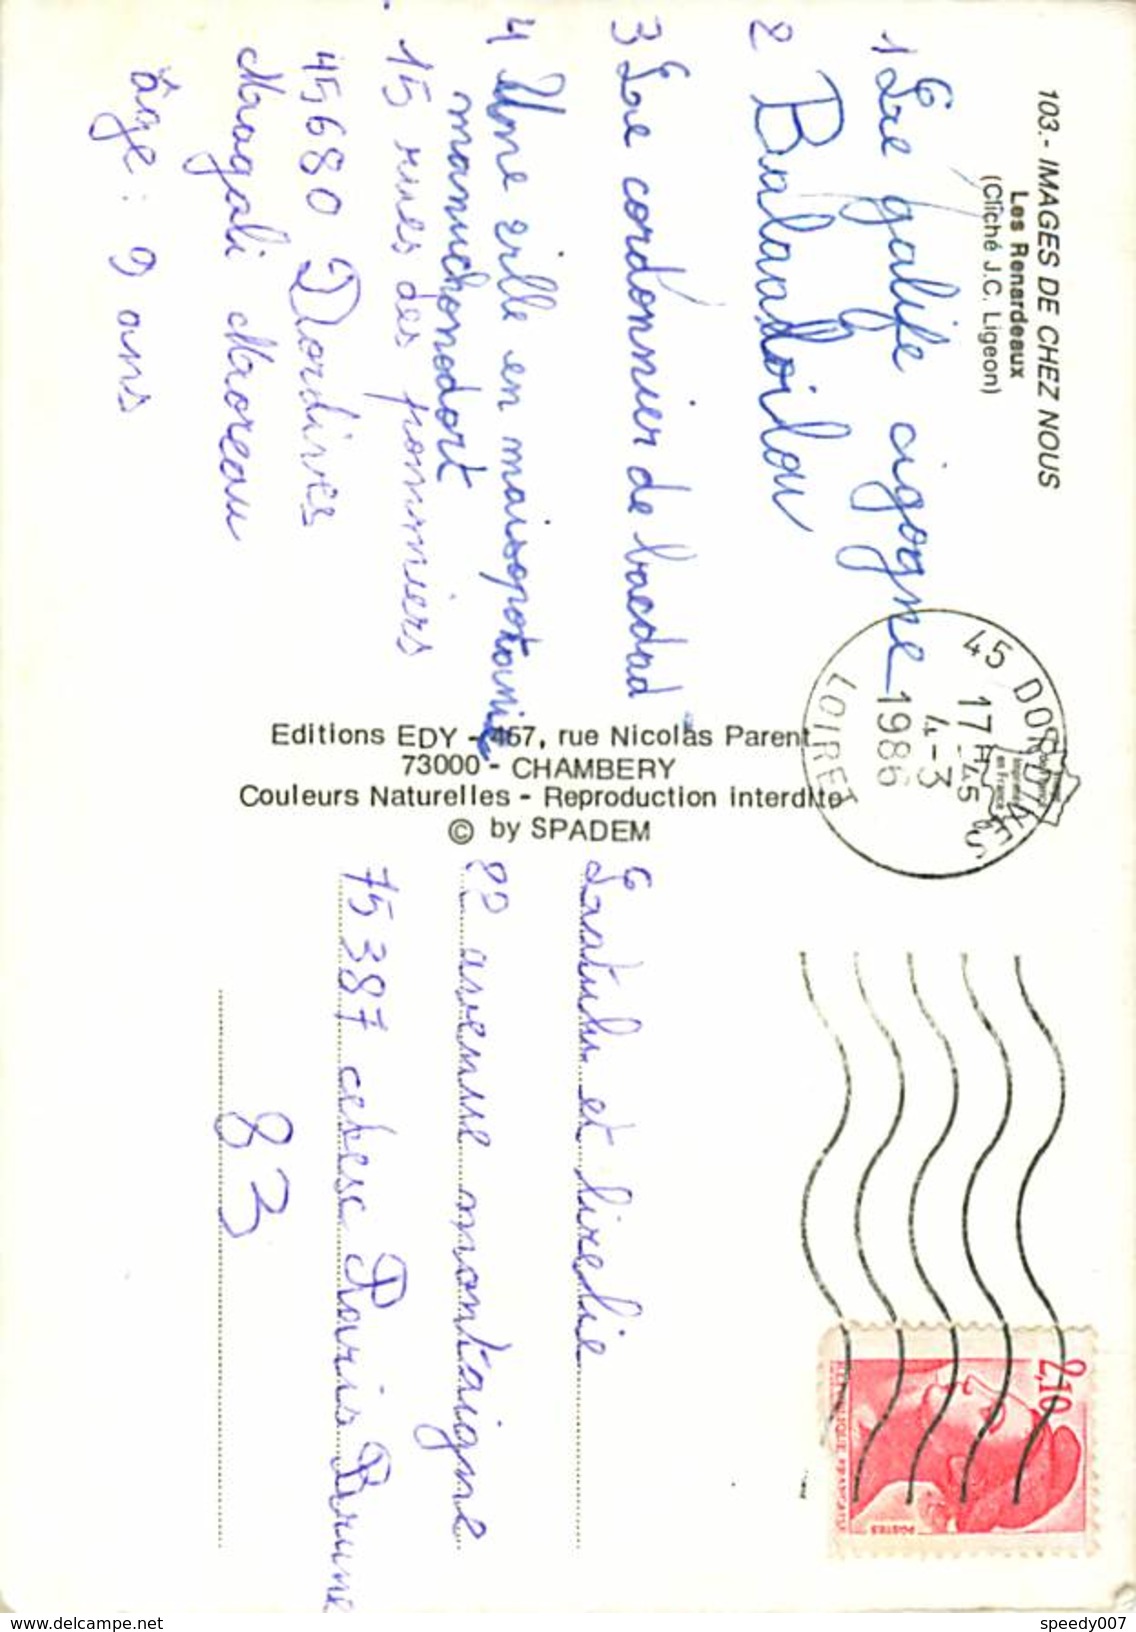 103.- IMAGES DE CHEZ NOUS
Les Renardeaux
(Cliché J.C. Ligeon)
1 Le galife cigogne
2 Balaadoilou
3 Le cordonnier de bacdad
4 Une ville en maisopotanie
manuchonodort
15 rues des pommiers
45680 Dordives
Magali Moreau
âge : 9 ans
Editions EDY - 467, rue Nicolas Parent
73000 - CHAMBERY
Couleurs Naturelles - Reproduction interdite
© by SPADEM
45 DORDIVES
17 H 45
4-3
1986
LOIRET
Imprimé
en France
2,10
REPUBLIQUE FRANÇAISE
POSTES
Lustulu et lirelie
82 avenue montaigne
75387 cedex Paris Brune
83
speedy007
www.delcampe.net